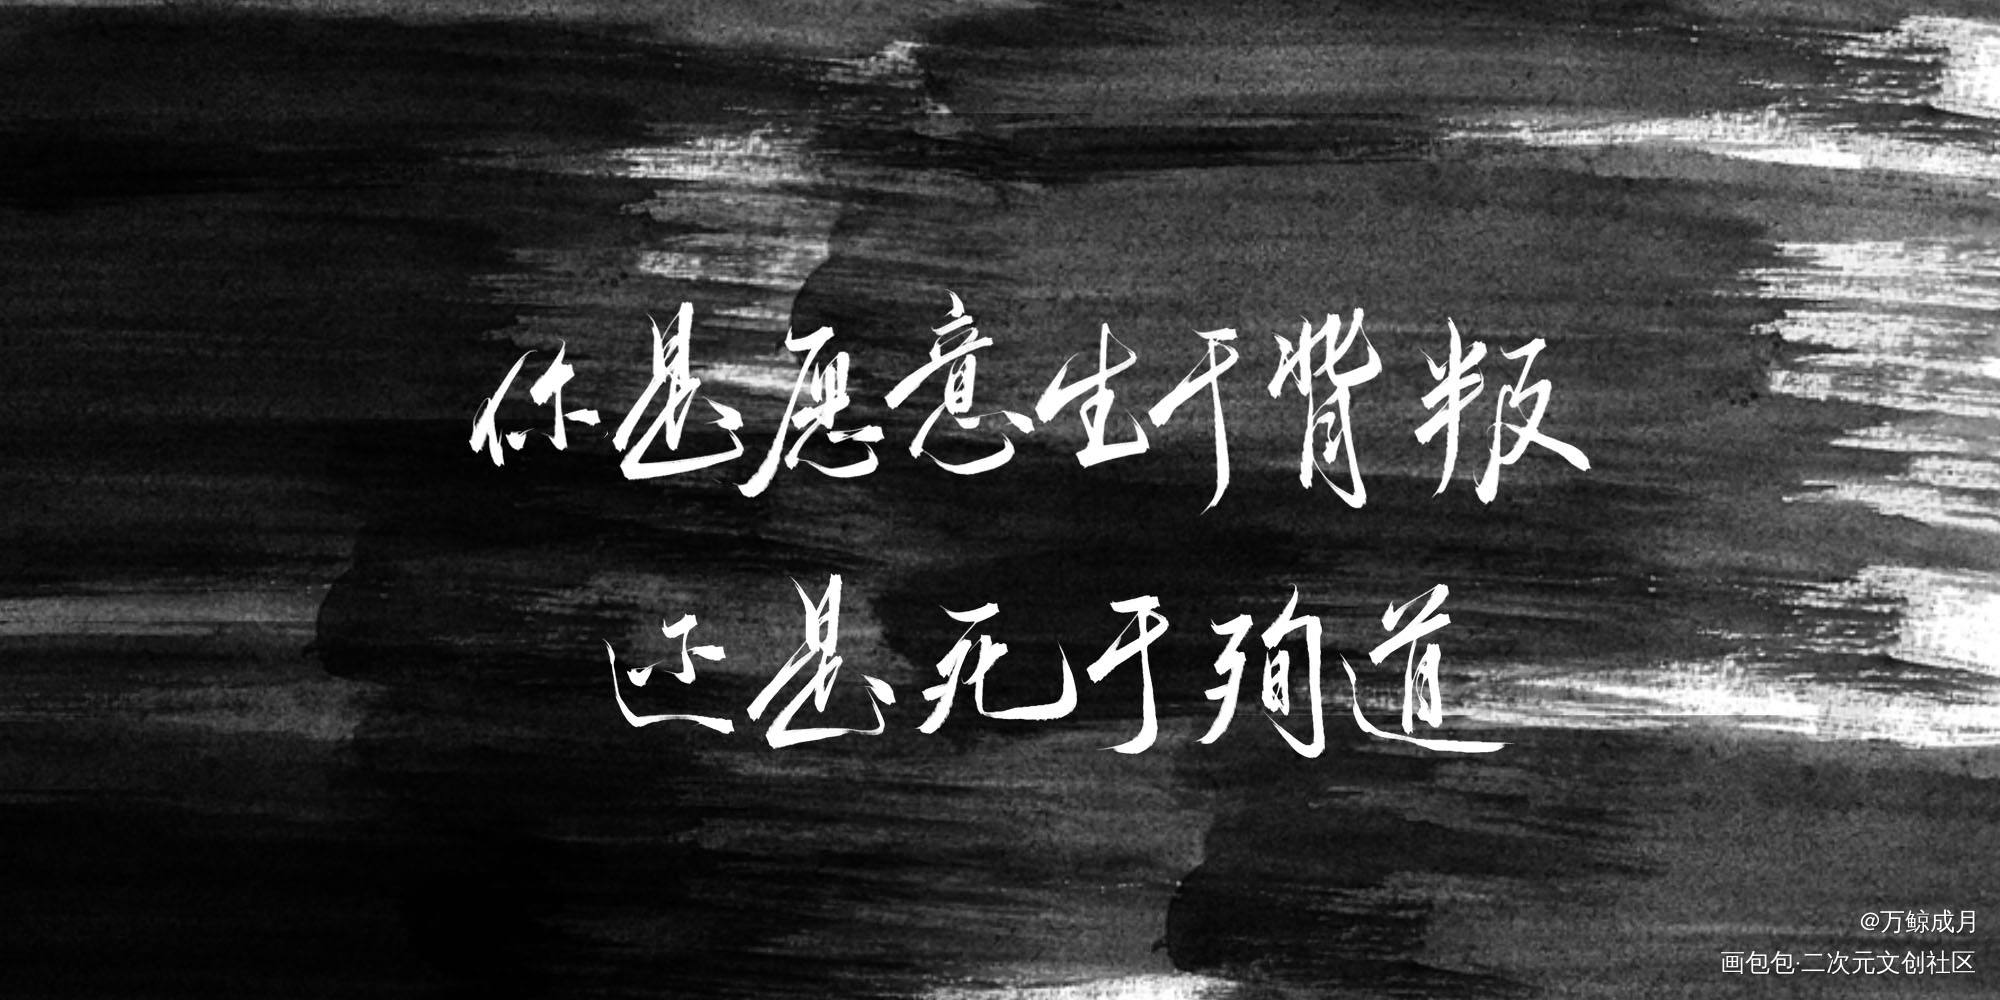 你是愿意生于背叛
还是死于殉道
@万鲸成月
画包包·二次元文创社区